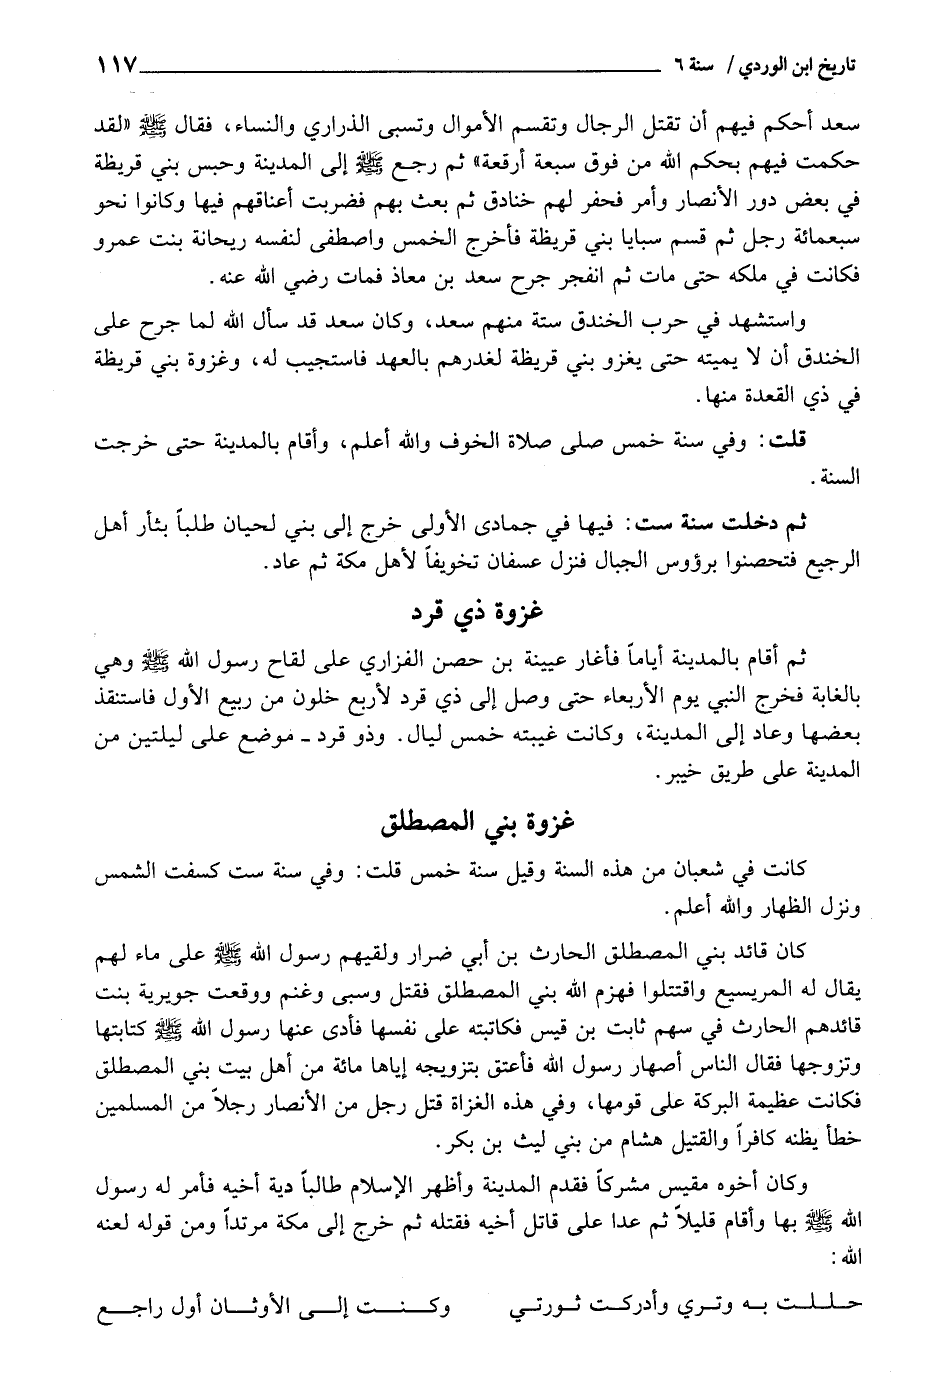 تاريخ ابن الوردي / سنة ٦ ١١٧
سعد أحكم فيهم أن تقتل الرجال وتقسم الأموال وتسبى الذراري والنساء، فقال ﷺ «لقد
حكمت فيهم بحكم الله من فوق سبعة أرقعة» ثم رجع ﷺ إلى المدينة وحبس بني قريظة
في بعض دور الأنصار وأمر فحفر لهم خنادق ثم بعث بهم فضربت أعناقهم فيها وكانوا نحو
سبعمائة رجل ثم قسم سبايا بني قريظة فأخرج الخمس واصطفى لنفسه ريحانة بنت عمرو
فكانت في ملكه حتى مات ثم انفجر جرح سعد بن معاذ فمات رضي الله عنه.
واستشهد في حرب الخندق ستة منهم سعد، وكان سعد قد سأل الله لما جرح على
الخندق أن لا يميته حتى يغزو بني قريظة لغدرهم بالعهد فاستجيب له، وغزوة بني قريظة
في ذي القعدة منها.
قلت: وفي سنة خمس صلى صلاة الخوف والله أعلم، وأقام بالمدينة حتى خرجت
السنة.
ثم دخلت سنة ست: فيها في جمادى الأولى خرج إلى بني لحيان طلباً بثأر أهل
الرجيع فتحصنوا برؤوس الجبال فنزل عسفان تخويفاً لأهل مكة ثم عاد.
غزوة ذي قرد
ثم أقام بالمدينة أياماً فأغار عيينة بن حصن الفزاري على لقاح رسول الله ﷺ وهي
بالغابة فخرج النبي يوم الأربعاء حتى وصل إلى ذي قرد لأربع خلون من ربيع الأول فاستنقذ
بعضها وعاد إلى المدينة، وكانت غيبته خمس ليال. وذو قرد ـ موضع على ليلتين من
المدينة على طريق خيبر.
غزوة بني المصطلق
كانت في شعبان من هذه السنة وقيل سنة خمس قلت: وفي سنة ست كسفت الشمس
ونزل الظهار والله أعلم.
كان قائد بني المصطلق الحارث بن أبي ضرار ولقيهم رسول الله ﷺ على ماء لهم
يقال له المريسيع واقتتلوا فهزم الله بني المصطلق فقتل وسبى وغنم ووقعت جويرية بنت
قائدهم الحارث في سهم ثابت بن قيس فكاتبته على نفسها فأدى عنها رسول الله ﷺ كتابتها
وتزوجها فقال الناس أصهار رسول الله فأعتق بتزويجه إياها مائة من أهل بيت بني المصطلق
فكانت عظيمة البركة على قومها، وفي هذه الغزاة قتل رجل من الأنصار رجلاً من المسلمين
خطأ يظنه كافراً والقتيل هشام من بني ليث بن بكر.
وكان أخوه مقيس مشركاً فقدم المدينة وأظهر الإسلام طالباً دية أخيه فأمر له رسول
الله ﷺ بها وأقام قليلاً ثم عدا على قاتل أخيه فقتله ثم خرج إلى مكة مرتداً ومن قوله لعنه
الله:
حللت به وتري وأدركت ثورتي وكنت إلى الأوثان أول راجع